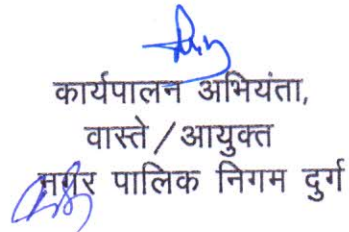 कार्यपालन अभियंता,
वास्ते / आयुक्त
नगर पालिक निगम दुर्ग